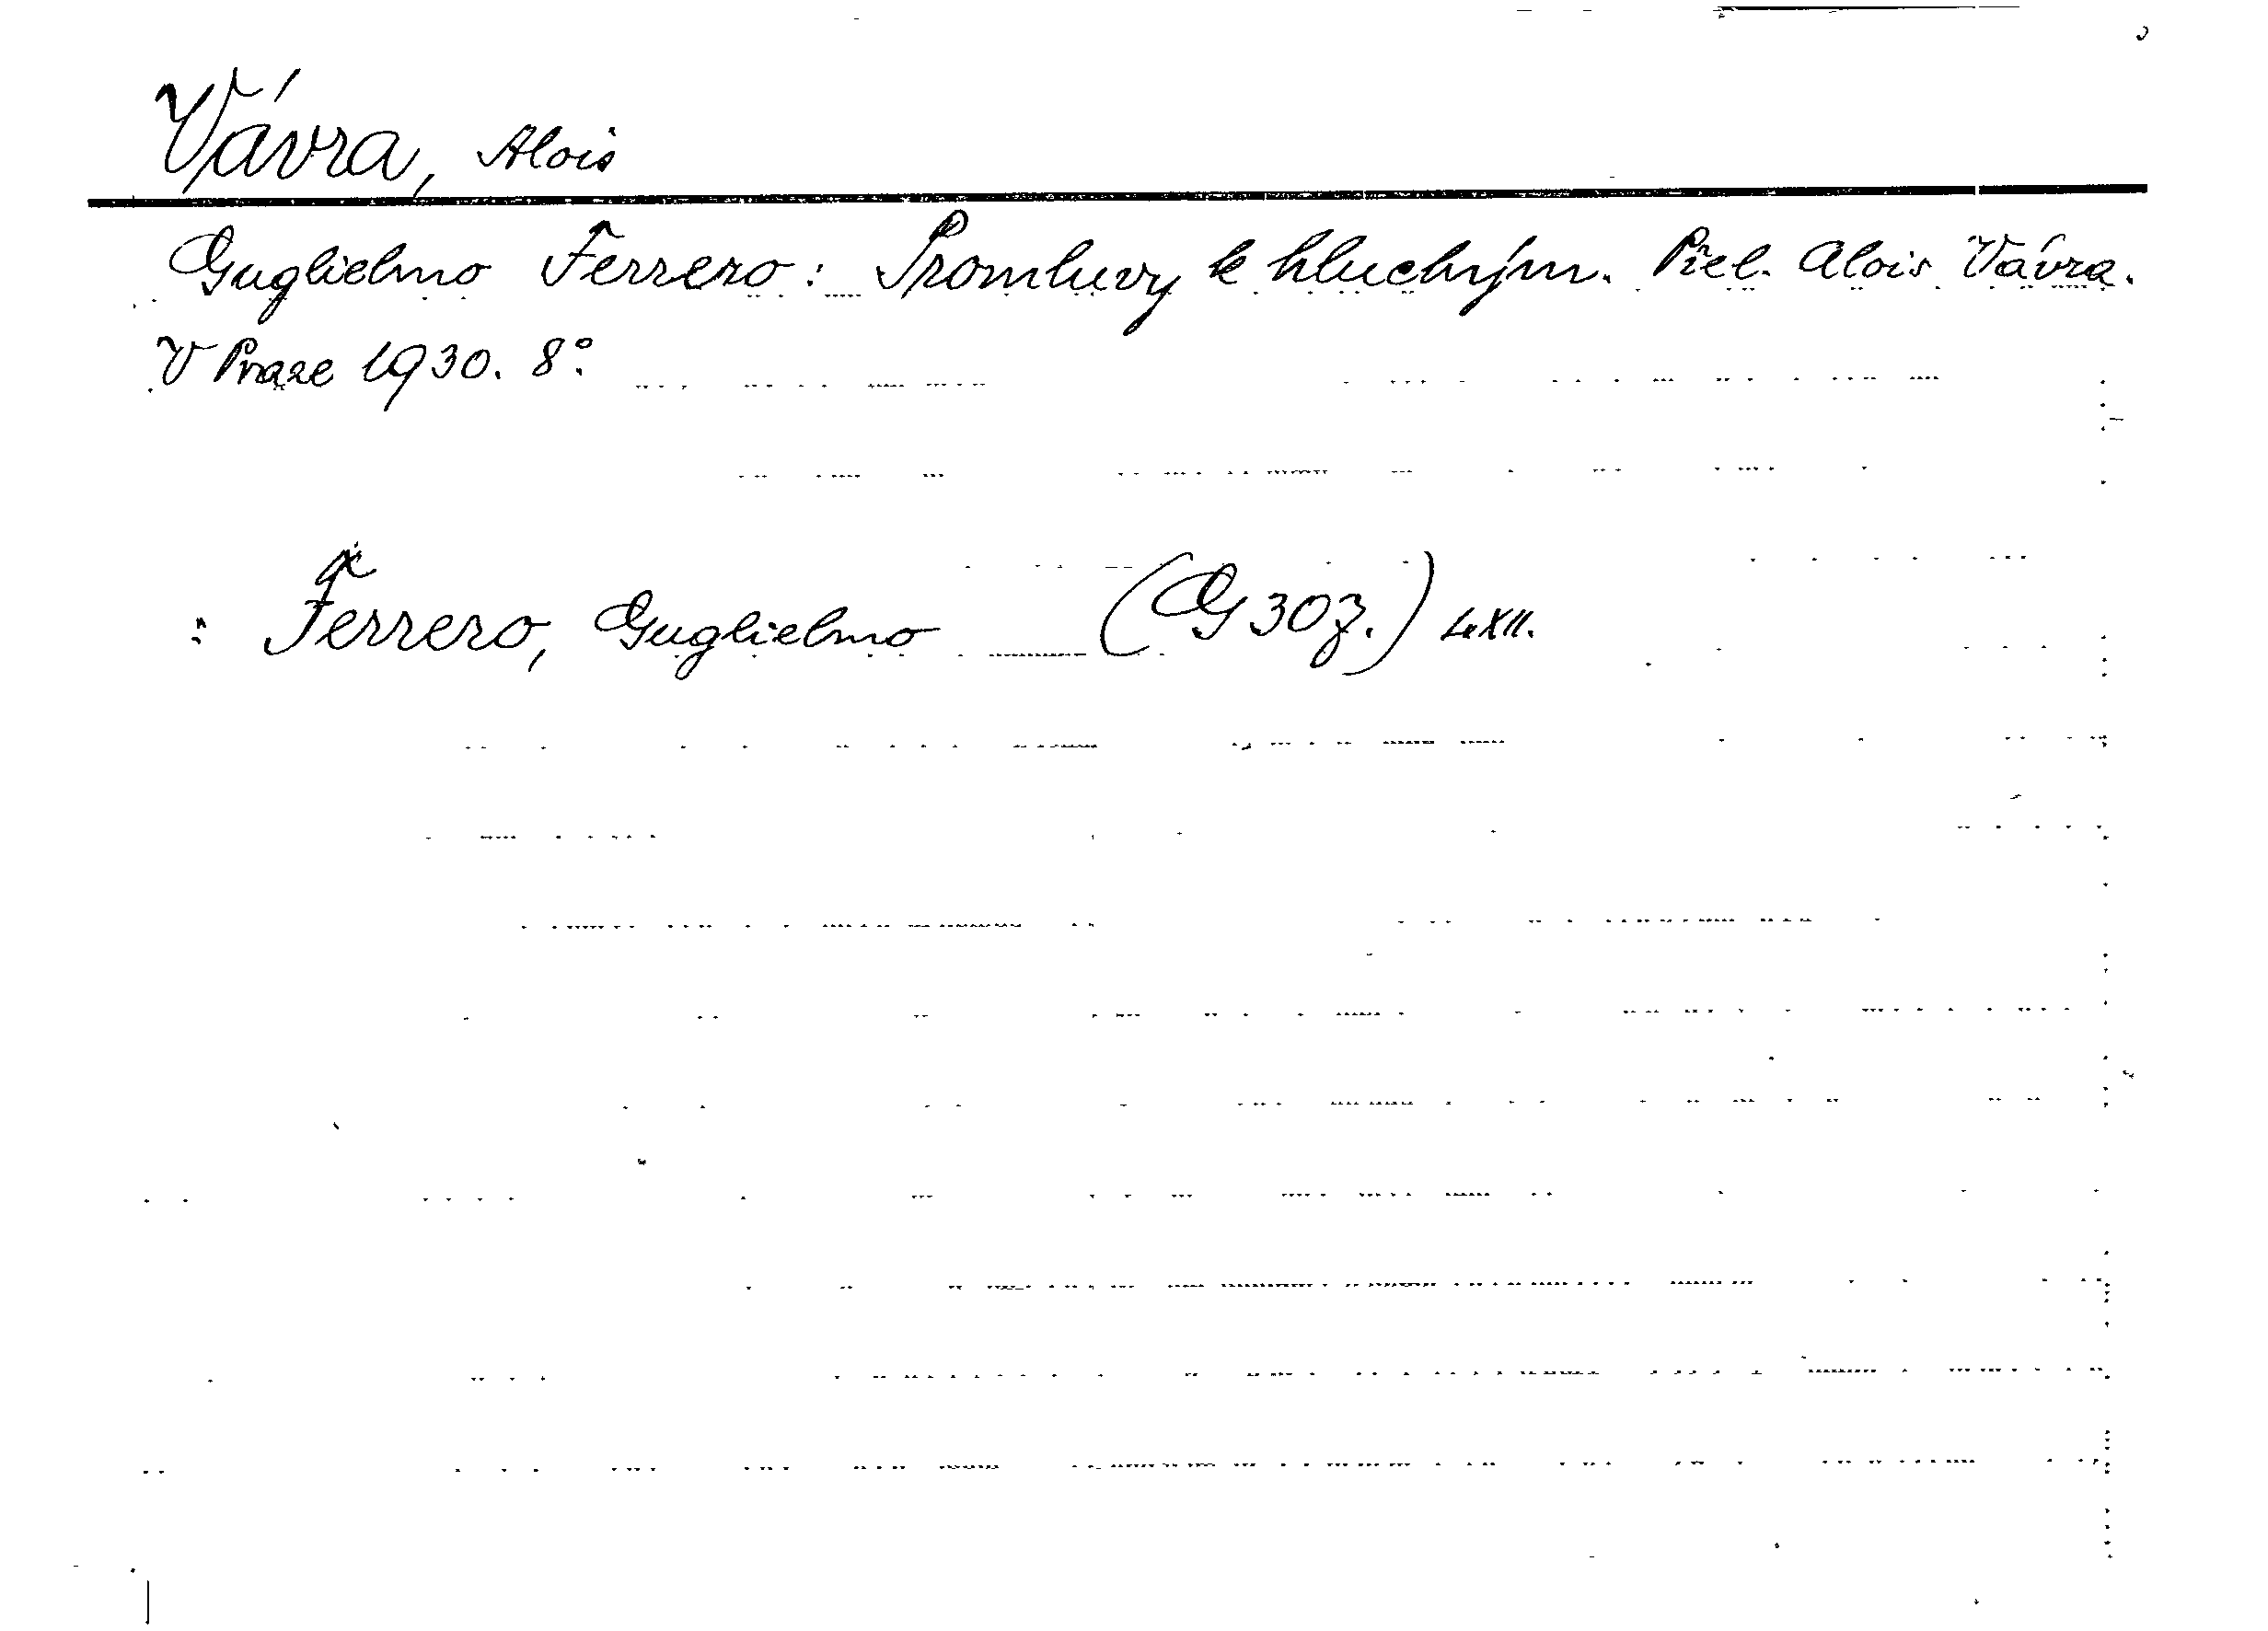 Vávra, Alois
Guglielmo Ferrero: Promluvy k hluchým. Přel. Alois Vávra.
V Praze 1930. 8°.
: Ferrero, Guglielmo (G 307.)